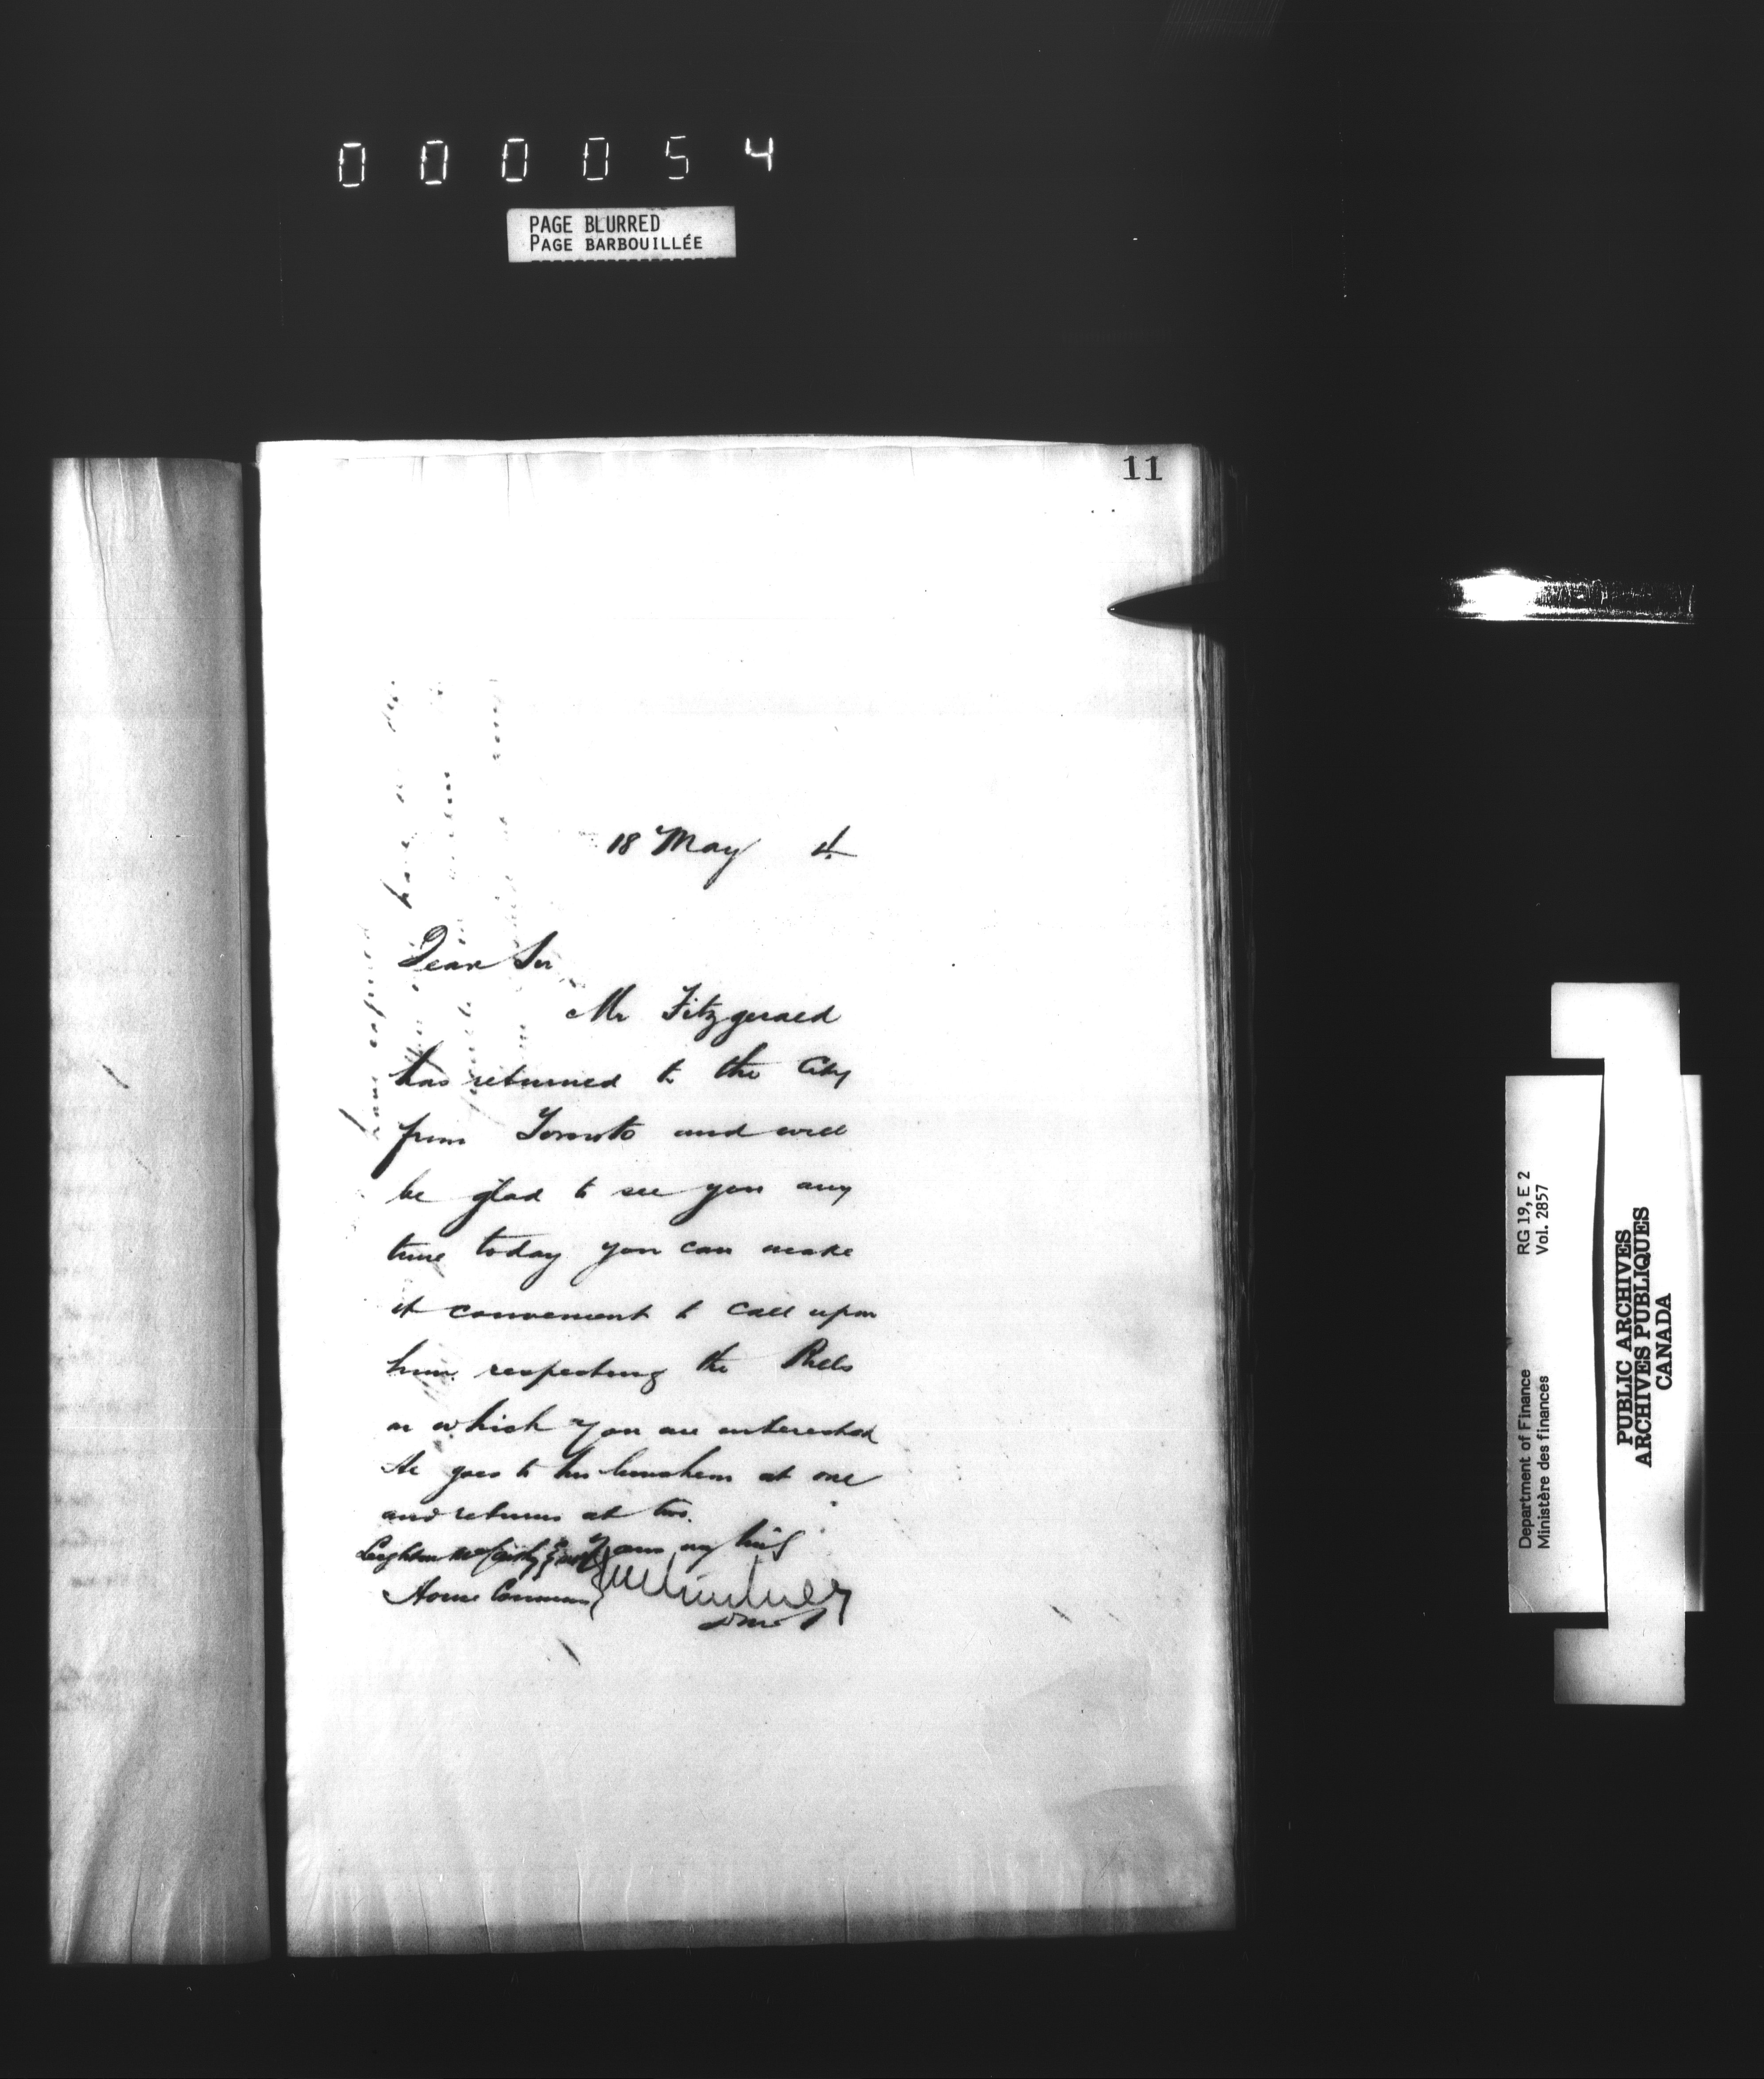 000054
PAGE BLURRED
PAGE BARBOUILLÉE
11
18 May
Dear Sir
Mr Fitzgerald
has returned to the City
from Toronto and will
be glad to see you any
time today you can make
it convenient to call upon
him respecting the Bills
in which you are interested
He goes to his luncheon at one
and returns at two.
Yours very truly
Leighton McCarthy Esq
House Commons
Department of Finance RG 19, E 2
Ministère des finances Vol. 2857
PUBLIC ARCHIVES
ARCHIVES PUBLIQUES
CANADA